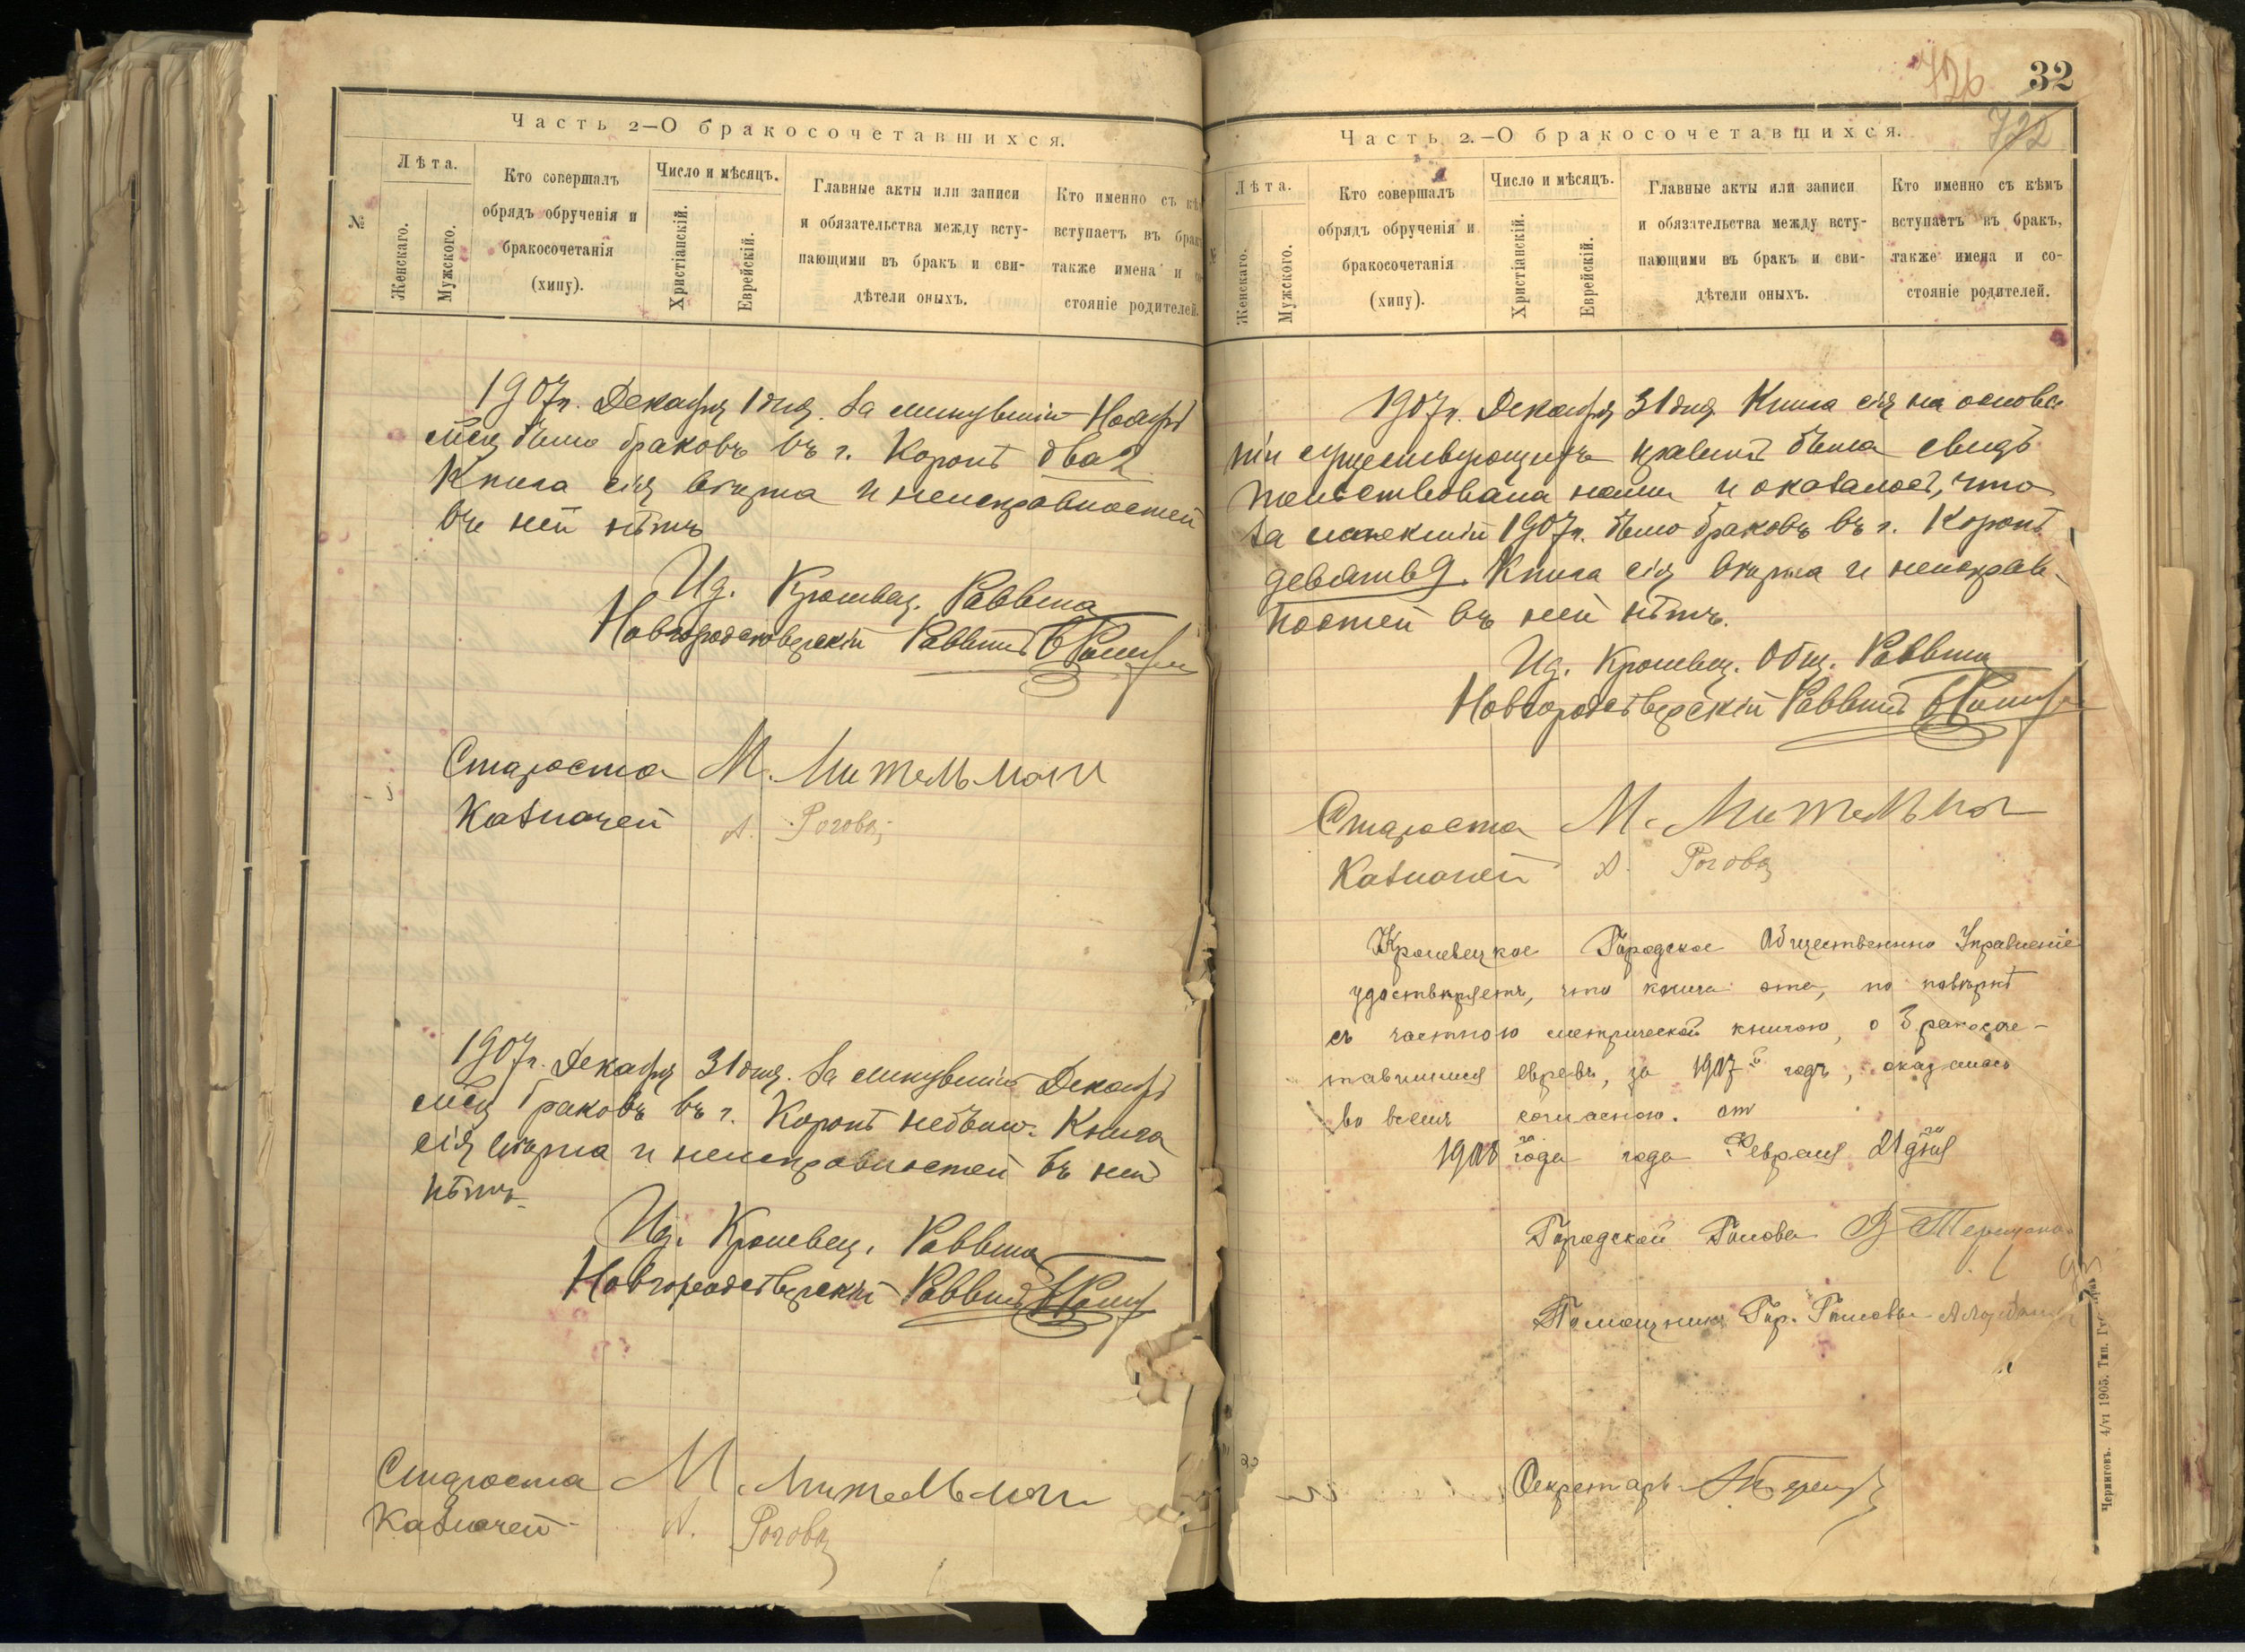 Часть 2—О бракосочетавшихся.
№
Лѣта.
Женскаго.
Мужского.
Кто совершалъ
обрядъ обрученія и
бракосочетанія
(хипу).
Число и мѣсяцъ.
Христіанскій.
Еврейскій.
Главные акты или записи
и обязательства между всту-
пающими въ бракъ и сви-
дѣтели оныхъ.
Кто именно съ
вступаетъ въ
также имена и
стояніе родителей.
1907г. Декабря 1 дня. За минувшій Ноябрь
мѣсяцъ было браковъ въ г. Коропѣ два 2
Книга сія вѣрна и неисправностей
въ ней нѣтъ
Из. Кролевец. Раввина
Новгородсѣверскій Раввинъ
Староста М. Мительман
Казначей А. Рогова
1907г. Декабря 31 дня. За минувшій Декабрь
мѣсяцъ браковъ въ г. Коропѣ небыло. Книга
сія вѣрна и неисправностей въ ней
нѣтъ
Из. Кролевец. Раввина
Новгородсѣверскій Раввинъ
Староста М. Мительман
Казначей А. Рогова
726
32
722
Часть 2.—О бракосочетавшихся.
Лѣта.
Женскаго.
Мужского.
Кто совершалъ
обрядъ обрученія и
бракосочетанія
(хипу).
Число и мѣсяцъ.
Христіанскій.
Еврейскій.
Главные акты или записи
и обязательства между всту-
пающими въ бракъ и сви-
дѣтели оныхъ.
Кто именно съ кѣмъ
вступаетъ въ бракъ,
также имена и со-
стояніе родителей.
1907г. Декабря 31 дня Книга сія на основа
ніи существующихъ правилъ была свидѣ
тельствована нами и оказалось, что
за истекшій 1907г. было браковъ въ г. Коропѣ
девять 9. Книга сія вѣрна и неисправ-
ностей въ ней нѣтъ.
Из. Кролевец. Общ. Раввина
Новгородсѣверскій Раввинъ
Староста М. Мительман
Казначей А. Рогова
Кролевецкое Городское Общественно Управленіе
удостовѣряетъ, что книга эта, по повѣркѣ
съ частною метрической книгою, о бракосоче-
тавшихся евреевъ, за 1907й годъ, оказалась
во всемъ согласною.
1908 года года Февраля 21 дня
Городской Голова
Помощникъ Гор. Головы
Секретарь
Черниговъ. 4/VI 1905. Тип.